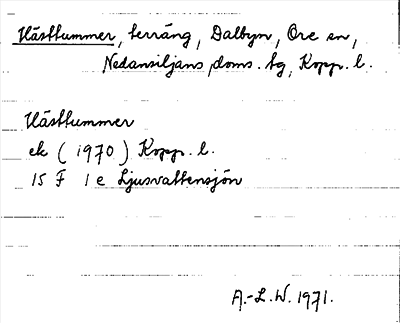 Västtummer, terräng, Dalbyn, Ore sn,
Nedansiljans doms. tg, Kopp. l.
Västtummer
ek (1970) Kopp. l.
15 F 1 e Ljusvattensjön
A.-L. W. 1971.